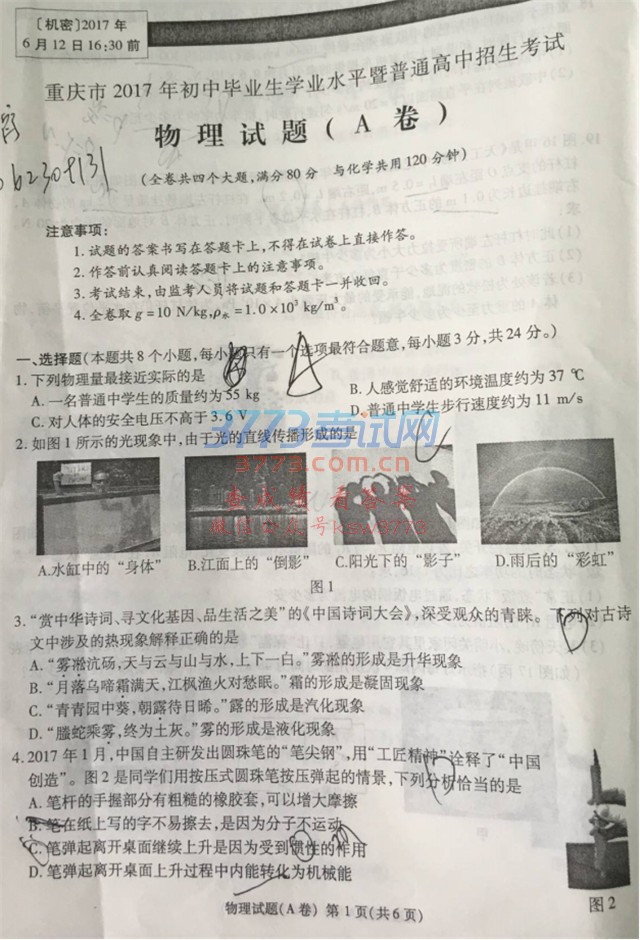 〔机密〕2017年
6月12日16:30前
重庆市2017年初中毕业生学业水平暨普通高中招生考试
物理试题(A卷)
(全卷共四个大题,满分80分 与化学共用120分钟)
注意事项:
1.试题的答案书写在答题卡上,不得在试卷上直接作答。
2.作答前认真阅读答题卡上的注意事项。
3.考试结束,由监考人员将试题和答题卡一并收回。
4.全卷取g=10 N/kg,ρ水=1.0×10³ kg/m³。
一、选择题(本题共8个小题,每小题只有一个选项最符合题意,每小题3分,共24分。)
1.下列物理量最接近实际的是
A.一名普通中学生的质量约为55 kg
B.人感觉舒适的环境温度约为37 ℃
C.对人体的安全电压不高于3.6 V
D.普通中学生步行速度约为11 m/s
3773考试网
2.如图1所示的光现象中,由于光的直线传播形成的是
3773.com.cn
查成绩 看答案
微信公众号ksw3773
A.水缸中的“身体”
B.江面上的“倒影”
C.阳光下的“影子”
D.雨后的“彩虹”
图1
3.“赏中华诗词、寻文化基因、品生活之美”的《中国诗词大会》,深受观众的青睐。下列对古诗
文中涉及的热现象解释正确的是
A.“雾凇沆砀,天与云与山与水,上下一白。”雾凇的形成是升华现象
B.“月落乌啼霜满天,江枫渔火对愁眠。”霜的形成是凝固现象
C.“青青园中葵,朝露待日晞。”露的形成是汽化现象
D.“螣蛇乘雾,终为土灰。”雾的形成是液化现象
4.2017年1月,中国自主研发出圆珠笔的“笔尖钢”,用“工匠精神”诠释了“中国
创造”。图2是同学们用按压式圆珠笔按压弹起的情景,下列分析恰当的是
A.笔杆的手握部分有粗糙的橡胶套,可以增大摩擦
B.笔在纸上写的字不易擦去,是因为分子不运动
C.笔弹起离开桌面继续上升是因为受到惯性的作用
D.笔弹起离开桌面上升过程中内能转化为机械能
图2
物理试题(A卷) 第1页(共6页)